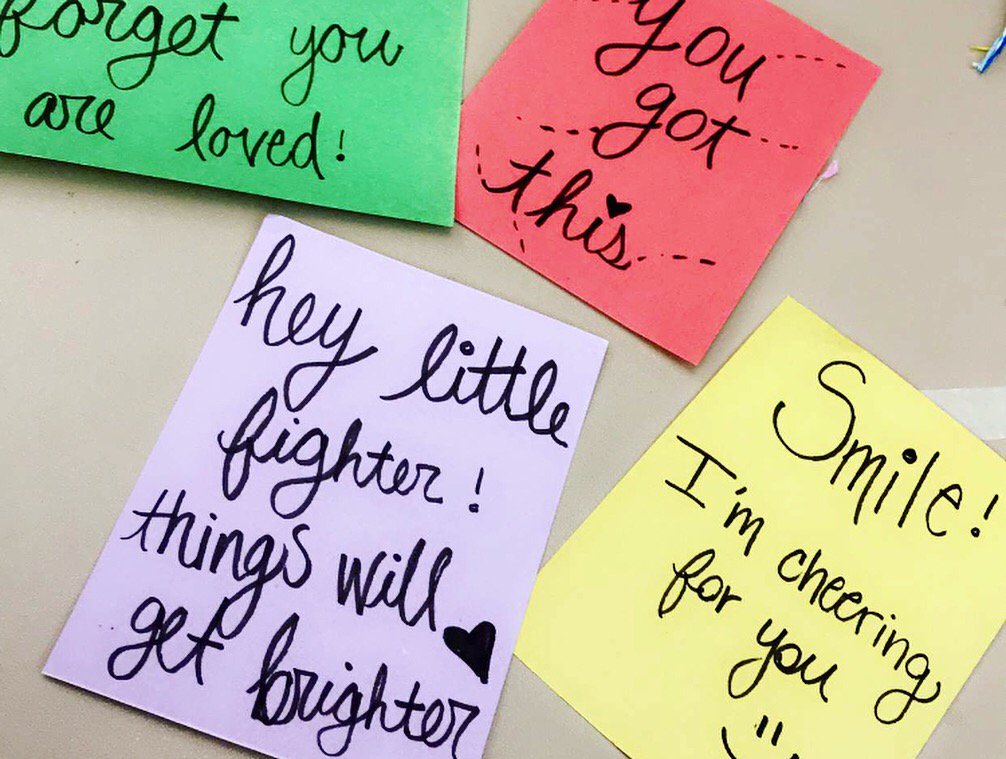 forget you
are loved!
You
got
this
hey little
fighter!
things will
get brighter
Smile!
I'm cheering
for you